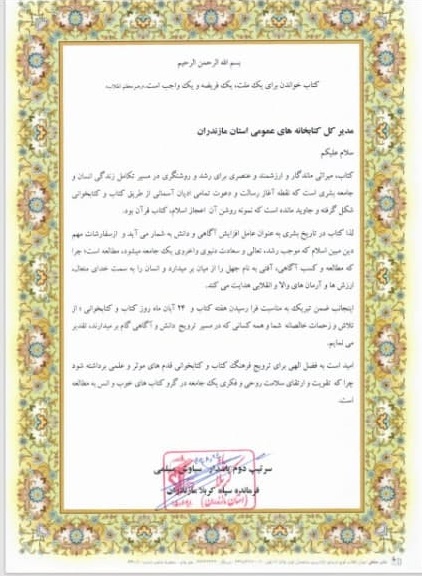 بسم الله الرحمن الرحیم
کتاب خواندن برای یک ملت، یک فریضه و یک واجب است. رهبر معظم انقلاب
مدیر کل کتابخانه های عمومی استان مازندران
سلام علیکم
کتاب، میراثی ماندگار و ارزشمند و عنصری برای رشد و روشنگری در مسیر تکامل زندگی انسان و
جامعه بشری است که نقطه آغاز رسالت و دعوت تمامی ادیان آسمانی از طریق کتاب و کتابخوانی
شکل گرفته و جاوید مانده است که نمونه روشن آن اعجاز اسلام، کتاب قرآن بود.
لذا کتاب در تاریخ بشری به عنوان عامل افزایش آگاهی و دانش به شمار می آید و ازسفارشات مهم
دین مبین اسلام که موجب رشد، تعالی و سعادت دنیوی واخروی یک جامعه میشود، مطالعه است؛ چرا
که مطالعه و کسب آگاهی، آفتی به نام جهل را از میان بر میدارد و انسان را به سمت خدای متعال،
ارزش ها و آرمان های والا و انقلابی هدایت می کند.
اینجانب ضمن تبریک به مناسبت فرا رسیدن هفته کتاب و ۲۴ آبان ماه روز کتاب و کتابخوانی ؛ از
تلاش و زحمات خالصانه شما و همه کسانی که در مسیر ترویج دانش و آگاهی گام بر میدارند، تقدیر
می نمایم.
امید است به فضل الهی برای ترویج فرهنگ کتاب و کتابخوانی قدم های موثر و علمی برداشته شود
چرا که تقویت و ارتقای سلامت روحی و فکری یک جامعه در گرو کتاب های خوب و انس به مطالعه
است.
سرتیپ دوم پاسدار سیاوش مسلمی
فرمانده سپاه کربلا مازندران